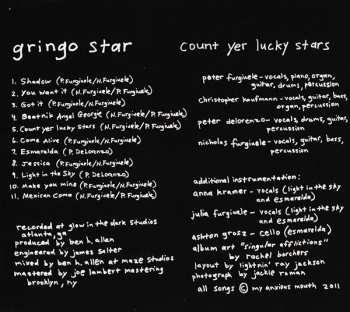 gringo star
1. Shadow (P.Furgiuele/N.Furgiuele)
2. You want it (N.Furgiuele/P.Furgiuele)
3. Got it (P.Furgiuele/N.Furgiuele)
4. Beatnik Angel George (N.Furgiuele/P.Furgiuele)
5. Count yer lucky stars (N.Furgiuele/P.Furgiuele)
6. Come Alive (P.Furgiuele/N.Furgiuele)
7. Esmeralda (P. DeLorenzo)
8. Jessica (P.Furgiuele/N.Furgiuele)
9. Light in the Sky (P. DeLorenzo)
10. Make you mine (P.Furgiuele/N.Furgiuele)
11. Mexican Coma (N.Furgiuele/P.Furgiuele)
recorded at glow in the dark studios
atlanta, ga
produced by ben h. allen
engineered by james salter
mixed by ben h. allen at maze studios
mastered by joe lambert mastering
brooklyn, ny
count yer lucky stars
peter furgiuele - vocals, piano, organ,
guitar, drums, percussion
christopher kaufmann - vocals, guitar, bass,
organ, percussion
peter delorenzo - vocals, drums, guitar,
percussion
nicholas furgiuele - vocals, guitar, bass,
percussion
additional instrumentation:
anna kramer - vocals (light in the sky
and esmeralda)
julia furgiuele - vocals (light in the sky
and esmeralda)
ashton grosz - cello (esmeralda)
album art "singular afflictions"
by rachel borchers
layout by lightnin' ray jackson
photograph by jackie roman
all songs © my anxious mouth 2011